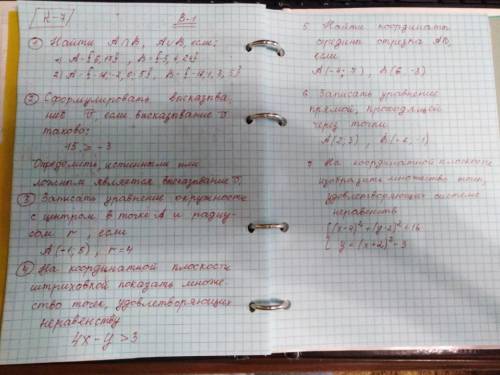 К-7
В-1
① Найти A∩B, A∪B, если:
② Сформулировать высказыва
ние v̅, если высказывание v
таково:
15 > -3
Определить, истинным или
ложным является высказывание v̅.
③ Записать уравнение окружности
с центром в точке А и радиу-
сом r, если
A(-1, 5), r=4
④ На координатной плоскости
штриховкой показать множе-
ство точек, удовлетворяющих
неравенству
4x - y > 3
5. Найти координаты
середины отрезка AB,
если
6. Записать уравнение
прямой, проходящей
через точки
A(2; 3), B(-2; -1)
На координатной плоскости
изобразить множество точек,
удовлетворяющих системе
неравенств